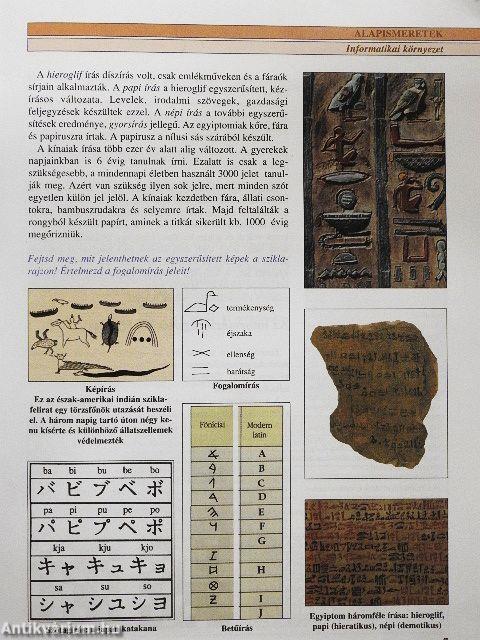 ALAPISMERETEK
Informatikai környezet
A hieroglif írás díszírás volt, csak emlékműveken és a fáraók
sírjain alkalmazták. A papi írás a hieroglif egyszerűsített, kéz-
írásos változata. Levelek, irodalmi szövegek, gazdasági
feljegyzések készültek ezzel. A népi írás a további egyszerű-
sítések eredménye, gyorsírás jellegű. Az egyiptomiak kőre, fára
és papiruszra írtak. A papirusz a nílusi sás szárából készült.
A kínaiak írása több ezer év alatt alig változott. A gyerekek
napjainkban is 6 évig tanulnak írni. Ezalatt is csak a leg-
szükségesebb, a mindennapi életben használt 3000 jelet tanul-
ják meg. Azért van szükség ilyen sok jelre, mert minden szót
egyetlen külön jel jelöl. A kínaiak kezdetben fára, állati cson-
tokra, bambuszrudakra és selyemre írtak. Majd feltalálták a
rongyból készült papírt, aminek a titkát sikerült kb. 1000 évig
megőrizniük.
Fejtsd meg, mit jelenthetnek az egyszerűsített képek a szikla-
rajzon! Értelmezd a fogalomírás jeleit!
termékenység
éjszaka
ellenség
barátság
Fogalomírás
Képírás
Ez az észak-amerikai indián szikla-
felirat egy törzsfőnök utazását beszéli
el. A három napig tartó úton négy ke-
nu kísérte és különböző állatszellemek
védelmezték
ba bi bu be bo
バ ビ ブ ベ ボ
pa pi pu pe po
パ ピ プ ペ ポ
kja kju kjo
キャ キュ キョ
sa su so
シャ シュ ショ
katakana
Föníciai Modern latin
A
B
C
D
E
F
G
H
I
J
Betűírás
Egyiptom háromféle írása: hieroglif,
papi (hieratikus), népi (demotikus)
Antikvarium.hu